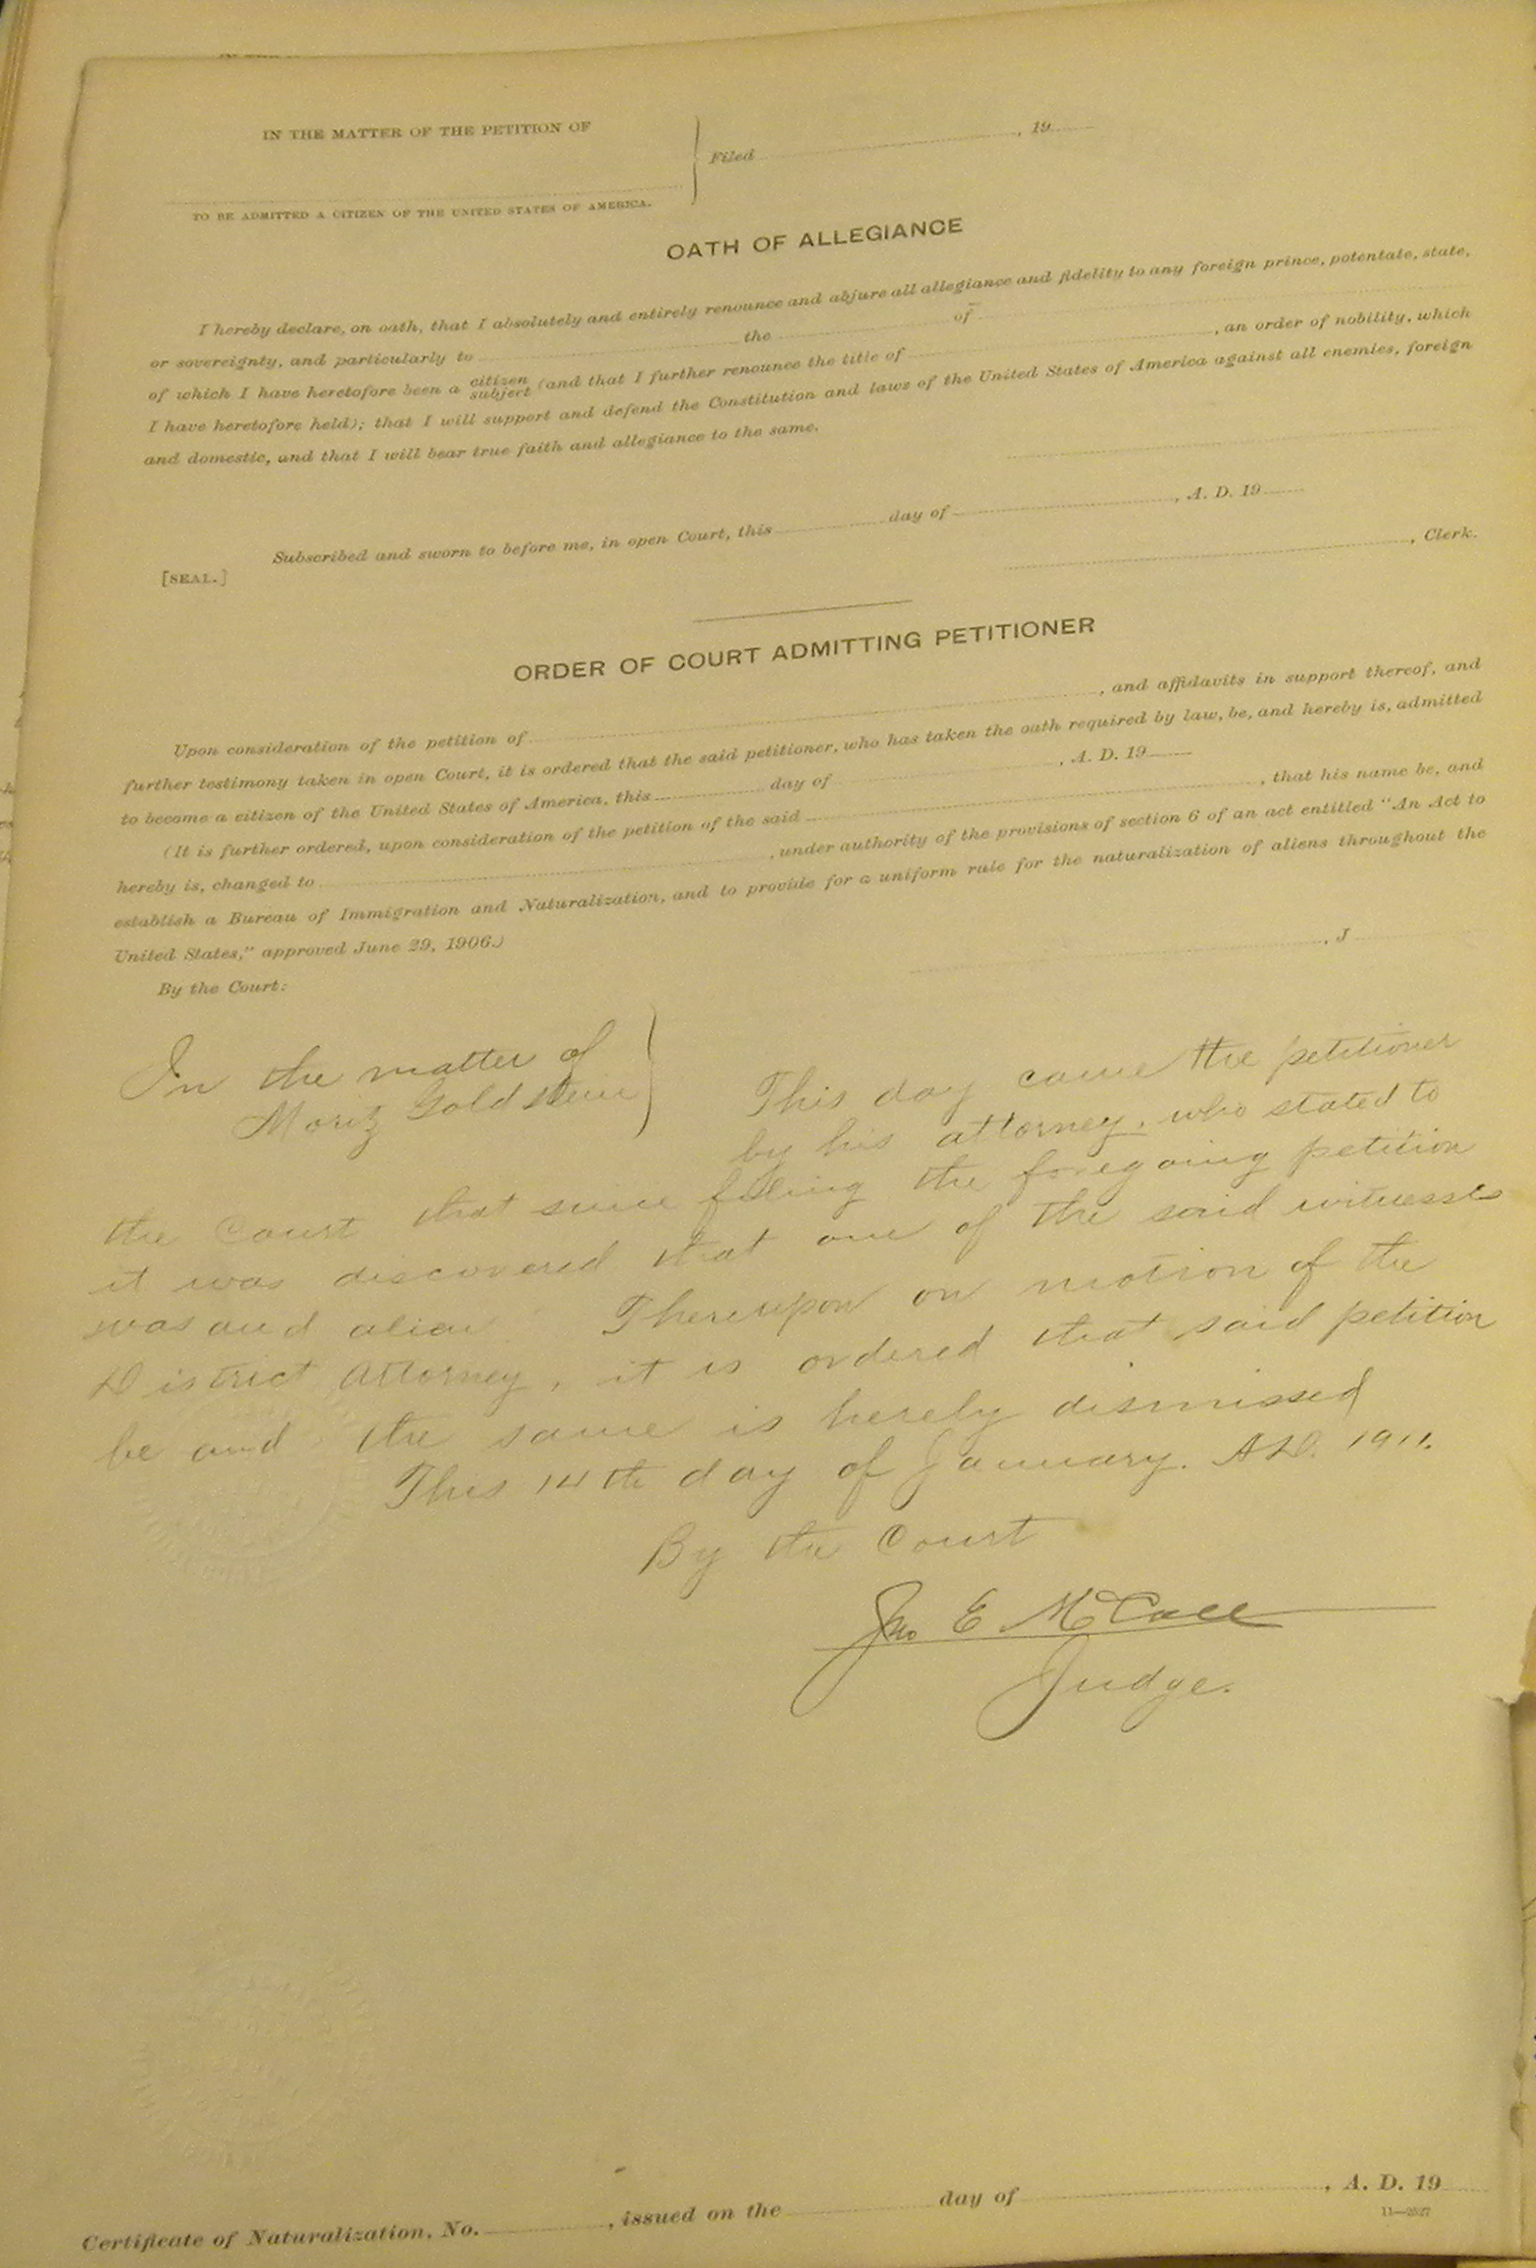 IN THE MATTER OF THE PETITION OF
TO BE ADMITTED A CITIZEN OF THE UNITED STATES OF AMERICA.
Filed , 19
OATH OF ALLEGIANCE
I hereby declare, on oath, that I absolutely and entirely renounce and abjure all allegiance and fidelity to any foreign prince, potentate, state,
or sovereignty, and particularly to the of
of which I have heretofore been a citizen subject (and that I further renounce the title of , an order of nobility, which
I have heretofore held); that I will support and defend the Constitution and laws of the United States of America against all enemies, foreign
and domestic, and that I will bear true faith and allegiance to the same.
Subscribed and sworn to before me, in open Court, this day of , A. D. 19
[SEAL.] , Clerk.
ORDER OF COURT ADMITTING PETITIONER
Upon consideration of the petition of , and affidavits in support thereof, and
further testimony taken in open Court, it is ordered that the said petitioner, who has taken the oath required by law, be, and hereby is, admitted
to become a citizen of the United States of America, this day of , A. D. 19
(It is further ordered, upon consideration of the petition of the said , that his name be, and
hereby is, changed to , under authority of the provisions of section 6 of an act entitled "An Act to
establish a Bureau of Immigration and Naturalization, and to provide for a uniform rule for the naturalization of aliens throughout the
United States," approved June 29, 1906.)
By the Court:
, J
In the matter of
Moritz Goldstein
This day came the petitioner
by his attorney, who stated to
the Court that since filing the foregoing petition
it was discovered that one of the said witnesses
was and alien Thereupon on motion of the
District Attorney, it is ordered that said petition
be and the same is hereby dismissed
This 14th day of January. A.D. 1911.
By the Court
Jno E McCall
Judge.
Certificate of Naturalization, No. , issued on the day of , A. D. 19
11—2527